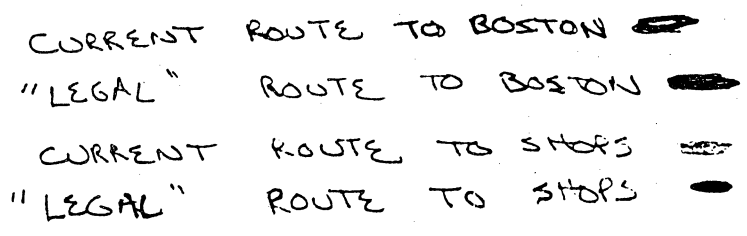 CURRENT ROUTE TO BOSTON
"LEGAL" ROUTE TO BOSTON
CURRENT ROUTE TO SHOPS
"LEGAL" ROUTE TO SHOPS